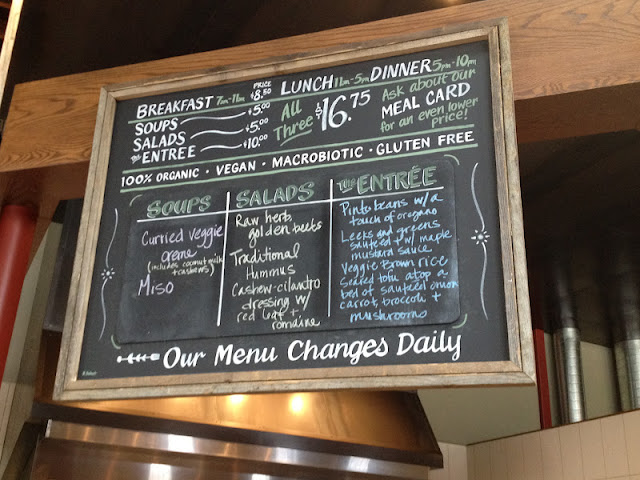 BREAKFAST 7AM-11AM PRICE $8.50 LUNCH 11AM-5PM DINNER 5PM-10PM
SOUPS $5.00
SALADS $5.00
THE ENTRÉE $10.00
All Three $16.75
Ask about our
MEAL CARD
for an even lower
price!
100% ORGANIC • VEGAN • MACROBIOTIC • GLUTEN FREE
SOUPS
Curried veggie
creme
(includes coconut milk
+ cashews)
Miso
SALADS
Raw herb,
golden beets
Traditional
Hummus
Cashew-cilantro
dressing w/
red leaf +
romaine
THE ENTRÉE
Pinto beans w/ a
touch of oregano
Leeks and greens
sauteed w/ maple
mustard sauce
Veggie Brown rice
Seared tofu atop a
bed of sauteed onion
carrot, broccoli +
mushrooms
Our Menu Changes Daily